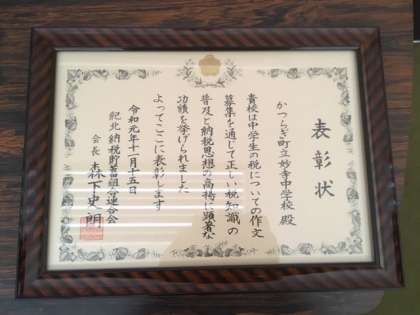 表彰状
かつらぎ町立妙寺中学校 殿
貴校は中学生の税についての作文
募集を通じて正しい税知識の
普及と納税思想の高揚に顕著な
功績を挙げられました
よってここに表彰します
令和元年十一月十五日
紀北納税貯蓄組合連合会
会長 森下史朗